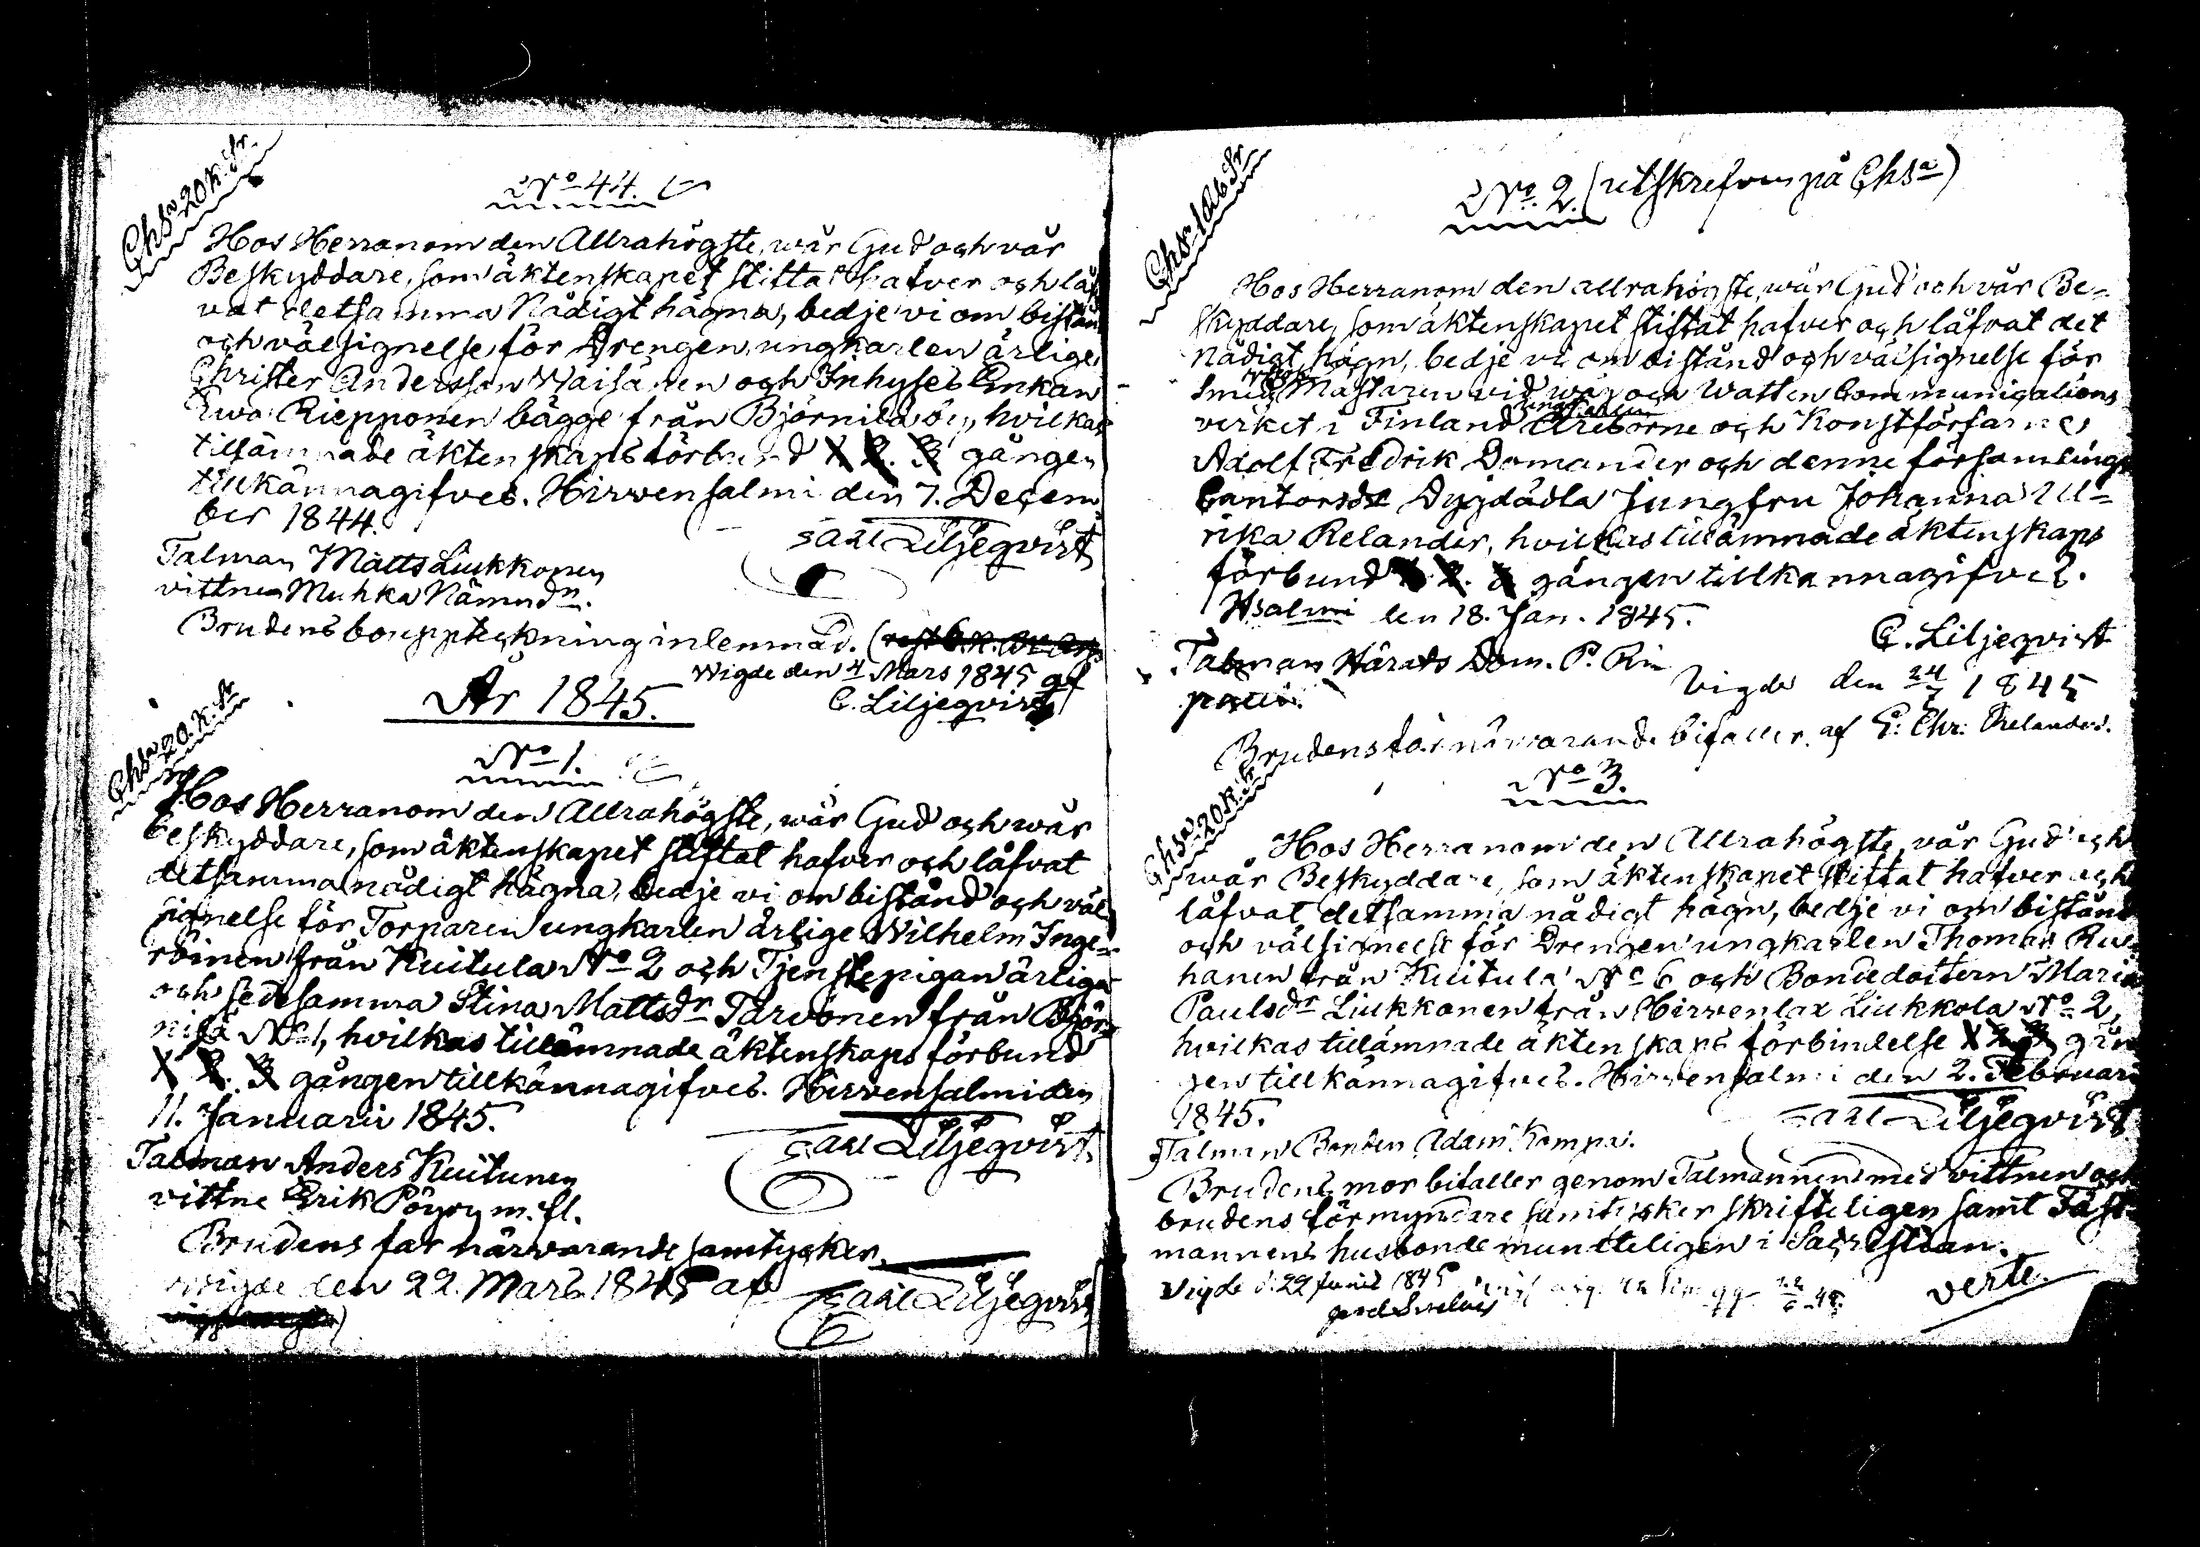 Chsa 20 K. Sr.
No 44.
Hos Herranom den Allrahögste, wår Gud och vår
Beskyddare, som äktenskapet stiftat hafver och låf-
vat detsamma Nådigt hägna, bedje vi om bistånd
och välsignelse för Drengen, ungkarlen ärlige
Christer Andersson Waisänen och Inhyses Enkan
Ewa Riepponen bägge från Björnilä, hvilkas
tillämnade äktenskapsförbund 1. 2. 3 gången
tillkännagifves. Hirvensalmi den 7. Decem-
ber 1844.
Carl Liljeqvist
Talman Matts Liukkonen
vittnen Muhka Nämndn.
Brudens bouppteckning inlemnad.
Wigde den 4 Mars 1845 af
C. Liljeqvist
År 1845.
Chsa 20. K. Sr
No 1.
Hos Herranom den Allrahögste, wår Gud och wår
beskyddare, som äktenskapet stiftat hafver och låfvat
detsamma nådigt hägna, bedje vi om bistånd och väl-
signelse för Torparen ungkarlen ärlige Wilhelm Inge-
röinen från Kuitula No 2 och Tjenstepigan ärliga
och sedesamma Stina Mattsdr Tarvonen från Björ-
nilä No 1, hvilkas tillämnade äktenskaps förbund
1. 2. 3 gången tillkännagifves. Hirvensalmi den
11. Januari 1845.
Carl Liljeqvist
Talman Anders Kuitunen
vittne Erik Pöyry m. fl.
Brudens far närvarande samtycker.
wigde den 22. Mars 1845 af
Carl Liljeqvist
No. 2. (utskrefven på Chsa)
Hos Herranom den allrahögste, wår Gud och vår Be-
skyddare, som äktenskapet stiftat hafver och låfvat det
Nådigt hägn, bedje vi om bistånd och välsignelse för
Mästaren vid wäg och Watten Communications
verket i Finland ungkarlen Äreborne och Konstförfarne
Adolf Fredrik Domander och denne församlings
Cantors Dygdädla Jungfru Johanna Ul-
rika Relander, hvilkas tillämnade äktenskaps
förbund 1. 2. 3 gången tillkännagifves.
Hsalmi den 18. Jan. 1845.
C. Liljeqvist
Talman Härads Dom. P. Ri
Vigde den 24/7 1845
Brudens far närvarande bifaller. af G: Chr: Relander.
Chsa 20 K. Sr
No 3.
Hos Herranom den Allrahögste, vår Gud och
wår Beskyddare, som äktenskapet stiftat hafver och
låfvat detsamma nådigt hägn, bedje vi om bistånd
och välsignelse för Drengen ungkarlen Thomas Ru-
hanen från Kuitula No 6 och Bondedottern Maria
Paulsdr Liukkonen från Hirvenlax Liukkola No 2,
hvilkas tillämnade äktenskaps förbindelse 1 2. 3 gån-
gen tillkännagifves. Hirvensalmi den 2. Februari
1845.
Carl Liljeqvist
Talman Bonden Adam Kompa.
Brudens mor bifaller genom Talmannen med vittnen och
brudens förmyndare samtycker skrifteligen samt Fäst-
mannens husbonde munteligen i Sacrestian.
Vigde d. 22 Junii 1845
verte.